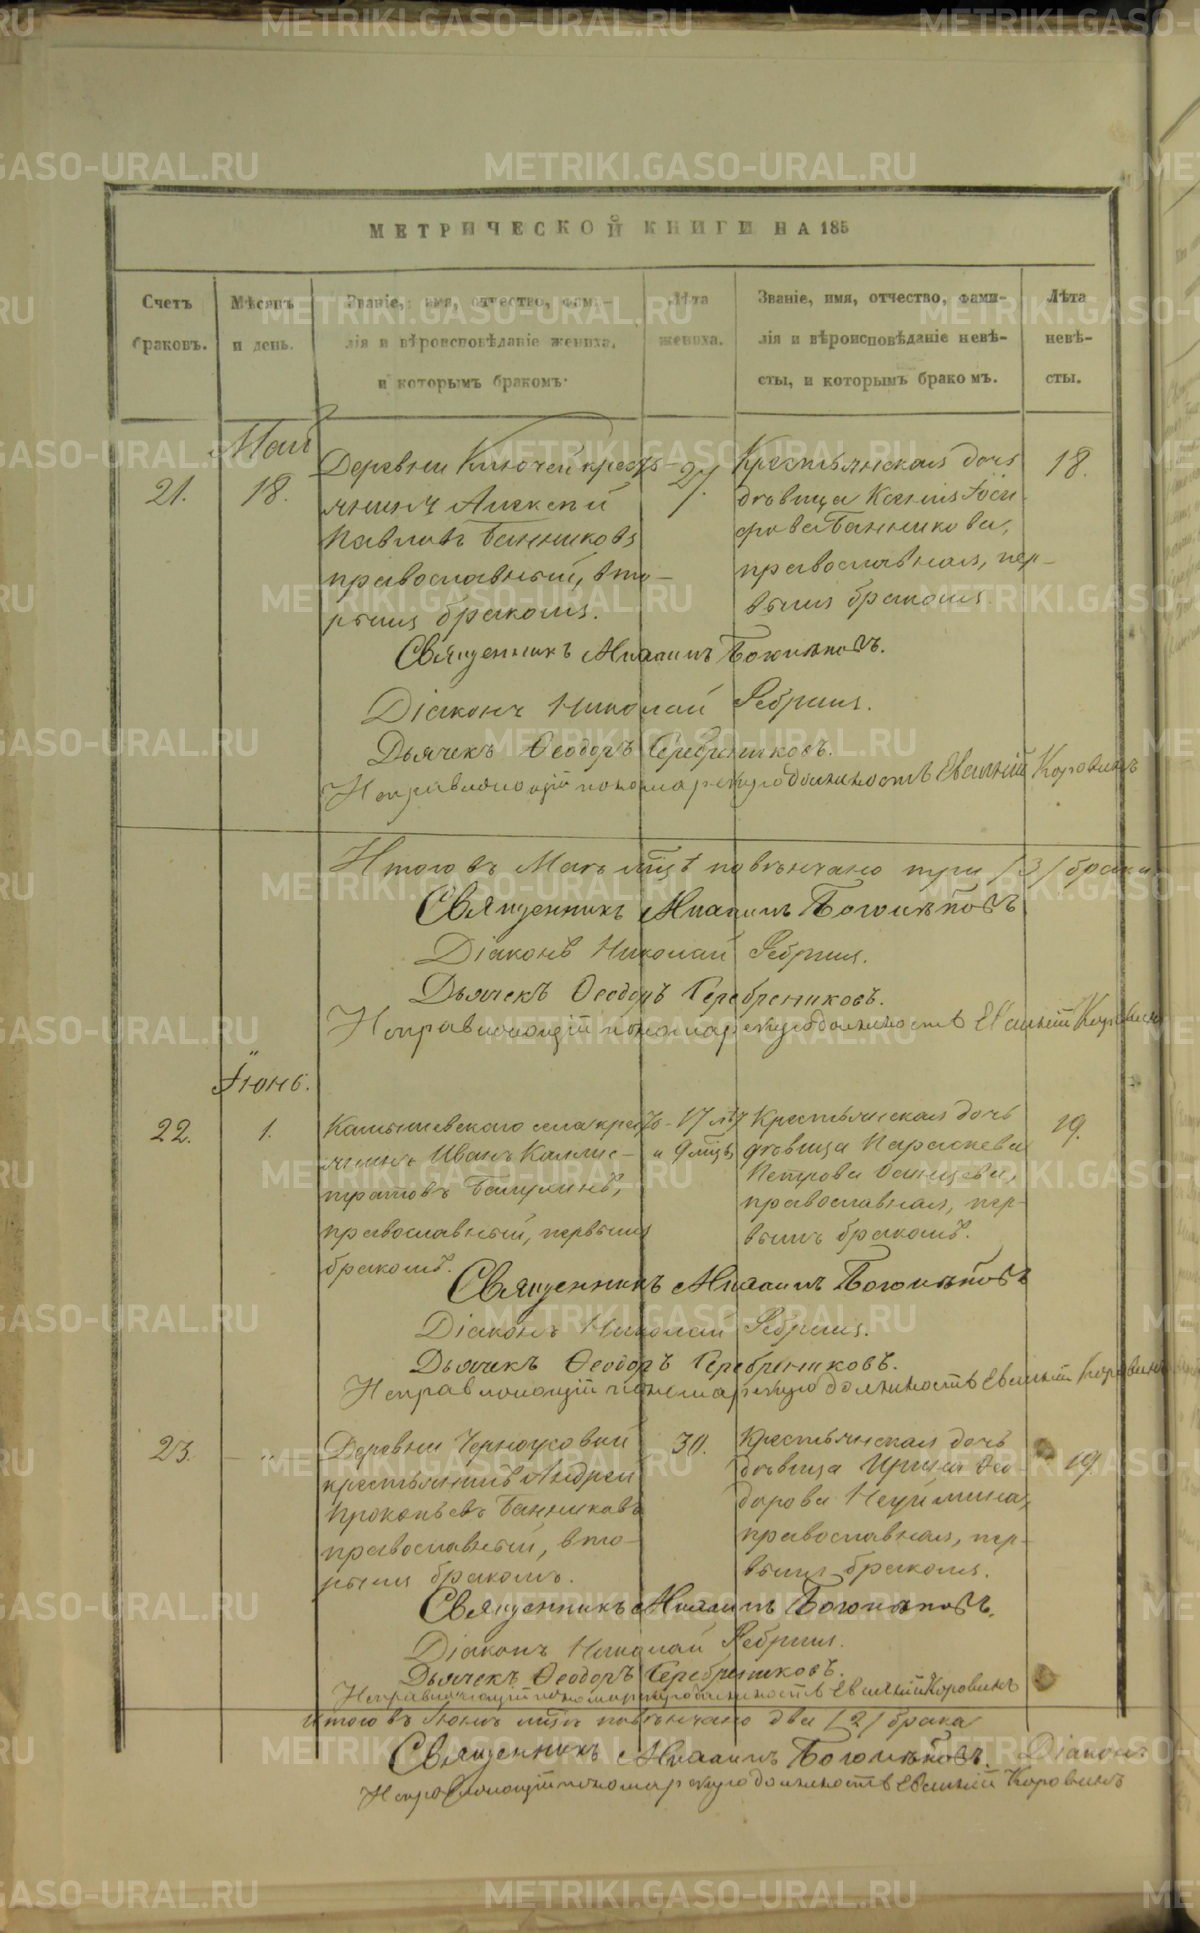 МЕТРИЧЕСКОЙ КНИГИ НА 185
Счетъ браковъ.
Мѣсяцъ и день.
Званіе, имя, отчество, фами-
лія и вѣроисповѣданіе жениха,
и которымъ бракомъ.
Лѣта жениха.
Званіе, имя, отчество, фами-
лія и вѣроисповѣданіе невѣ-
сты, и которымъ бракомъ.
Лѣта невѣ-
сты.
Май
21.
18.
Деревни Ключей кресть-
янинъ Алексѣй
Павловъ Банниковъ
православный, вто-
рымъ бракомъ.
27.
Крестьянская дочь
дѣвица Ксенія
Банникова,
православная, пер-
вымъ бракомъ.
18.
Священникъ Михаилъ Боголѣповъ.
Діаконъ Николай Ребринъ.
Дьячекъ Ѳеодоръ Серебрениковъ.
Исправляющій пономарскую должность Евгеній Коровинъ
Итого въ Маѣ м͠цѣ повѣнчано три /3/ брака
Священникъ Михаилъ Боголѣповъ
Діаконъ Николай Ребринъ.
Дьячекъ Ѳеодоръ Серебрениковъ.
Исправляющій пономарскую должность Евгеній Коровинъ
Іюнь.
22.
1.
Камышевскаго села кресть-
янинъ Иванъ Каллис-
тратовъ
православный, первымъ
бракомъ.
17 лѣтъ
и 9 м͠цъ
Крестьянская дочь
дѣвица Параскева
Петрова
православная, пер-
вымъ бракомъ.
19.
Священникъ Михаилъ Боголѣповъ
Діаконъ Николай Ребринъ.
Дьячекъ Ѳеодоръ Серебрениковъ.
Исправляющій пономарскую должность Евгеній Коровинъ
23.
— „
Деревни Черноусовой
крестьянинъ Андрей
Прокопьевъ Банниковъ
православный, вто-
рымъ бракомъ.
30.
Крестьянская дочь
дѣвица Ирина Ѳео-
дорова Неуймина,
православная, пер-
вымъ бракомъ.
19.
Священникъ Михаилъ Боголѣповъ.
Діаконъ Николай Ребринъ.
Дьячекъ Ѳеодоръ Серебрениковъ.
Исправляющій пономарскую должность Евгеній Коровинъ
Итого въ Іюнѣ м͠цѣ повѣнчано два /2/ брака
Священникъ Михаилъ Боголѣповъ. Діаконъ
Исправляющій пономарскую должность Евгеній Коровинъ
METRIKI.GASO-URAL.RU